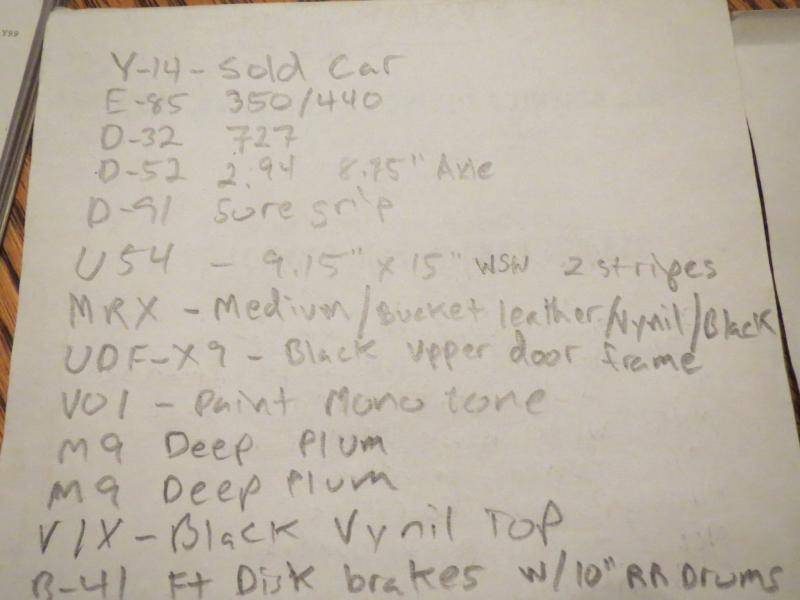 Y99
Y-14 - Sold Car
E-85 350/440
D-32 727
D-52 2.94 8.75" Axle
D-91 Sure grip
U54 - 9.15" x 15" WSW 2 stripes
MRX - Medium/Bucket leather/Vynil/Black
UDF-X9 - Black upper door frame
V01 - Paint Mono tone
M9 Deep Plum
M9 Deep Plum
V1X - Black Vynil Top
B-41 Ft Disk brakes W/10" RR Drums